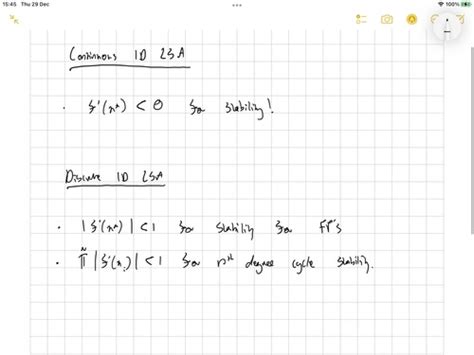 15:45 Thu 29 Dec
100%
Continuous 1D LSA
· f'(x*) < 0 for stability!
Discrete 1D LSA
· |f'(x*)| < 1 for stability for FP's
· ñ∏ |f'(xᵢ)| < 1 for nth degree cycle stability.